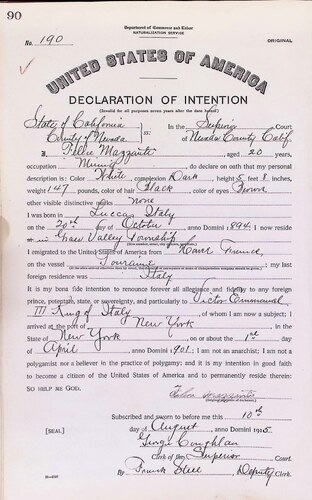 90
Department of Commerce and Labor
NATURALIZATION SERVICE
No. 190
ORIGINAL
UNITED STATES OF AMERICA
DECLARATION OF INTENTION
(Invalid for all purposes seven years after the date hereof)
State of California
County of Nevada ss:
In the Superior Court
of Nevada County Calif.
I, Mazzanti, aged 20 years,
occupation Miner, do declare on oath that my personal
description is: Color White, complexion Dark, height 5 feet 8 inches,
weight 147 pounds, color of hair Black, color of eyes Brown
other visible distinctive marks None
I was born in Lucca Italy
on the 20th day of October, anno Domini 1894; I now reside
at Grass Valley Township
I emigrated to the United States of America from Havre France,
on the vessel Touraine; my last
foreign residence was Italy
It is my bona fide intention to renounce forever all allegiance and fidelity to any foreign
prince, potentate, state, or sovereignty, and particularly to Victor Emmanuel
III King of Italy, of whom I am now a subject; I
arrived at the port of New York, in the
State of New York, on or about the 1st day
of April, anno Domini 1901; I am not an anarchist; I am not a
polygamist nor a believer in the practice of polygamy; and it is my intention in good faith
to become a citizen of the United States of America and to permanently reside therein:
SO HELP ME GOD.
Subscribed and sworn to before me this 10th
[SEAL]
day of August, anno Domini 1915
George Coughlan
Clerk of the Superior Court.
By Frank Steel Deputy Clerk.